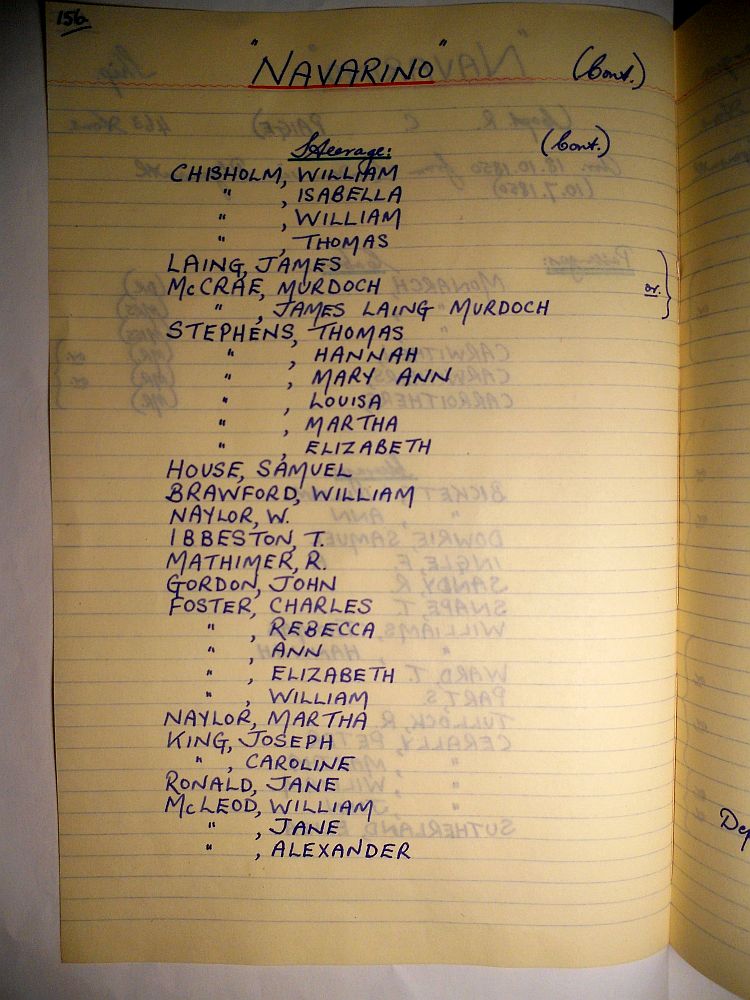 156
"NAVARINO" (Cont.)
Steerage: (Cont.)
CHISHOLM, WILLIAM
" , ISABELLA
" , WILLIAM
" , THOMAS
LAING, JAMES
McCRAE, MURDOCH or.
" , JAMES LAING MURDOCH
STEPHENS, THOMAS
" , HANNAH
" , MARY ANN
" , LOUISA
" , MARTHA
" , ELIZABETH
HOUSE, SAMUEL
BRAWFORD, WILLIAM
NAYLOR, W.
IBBESTON, T.
MATHIMER, R.
GORDON, JOHN
FOSTER, CHARLES
" , REBECCA
" , ANN
" , ELIZABETH
" , WILLIAM
NAYLOR, MARTHA
KING, JOSEPH
" , CAROLINE
RONALD, JANE
McLEOD, WILLIAM
" , JANE
" , ALEXANDER
Dep